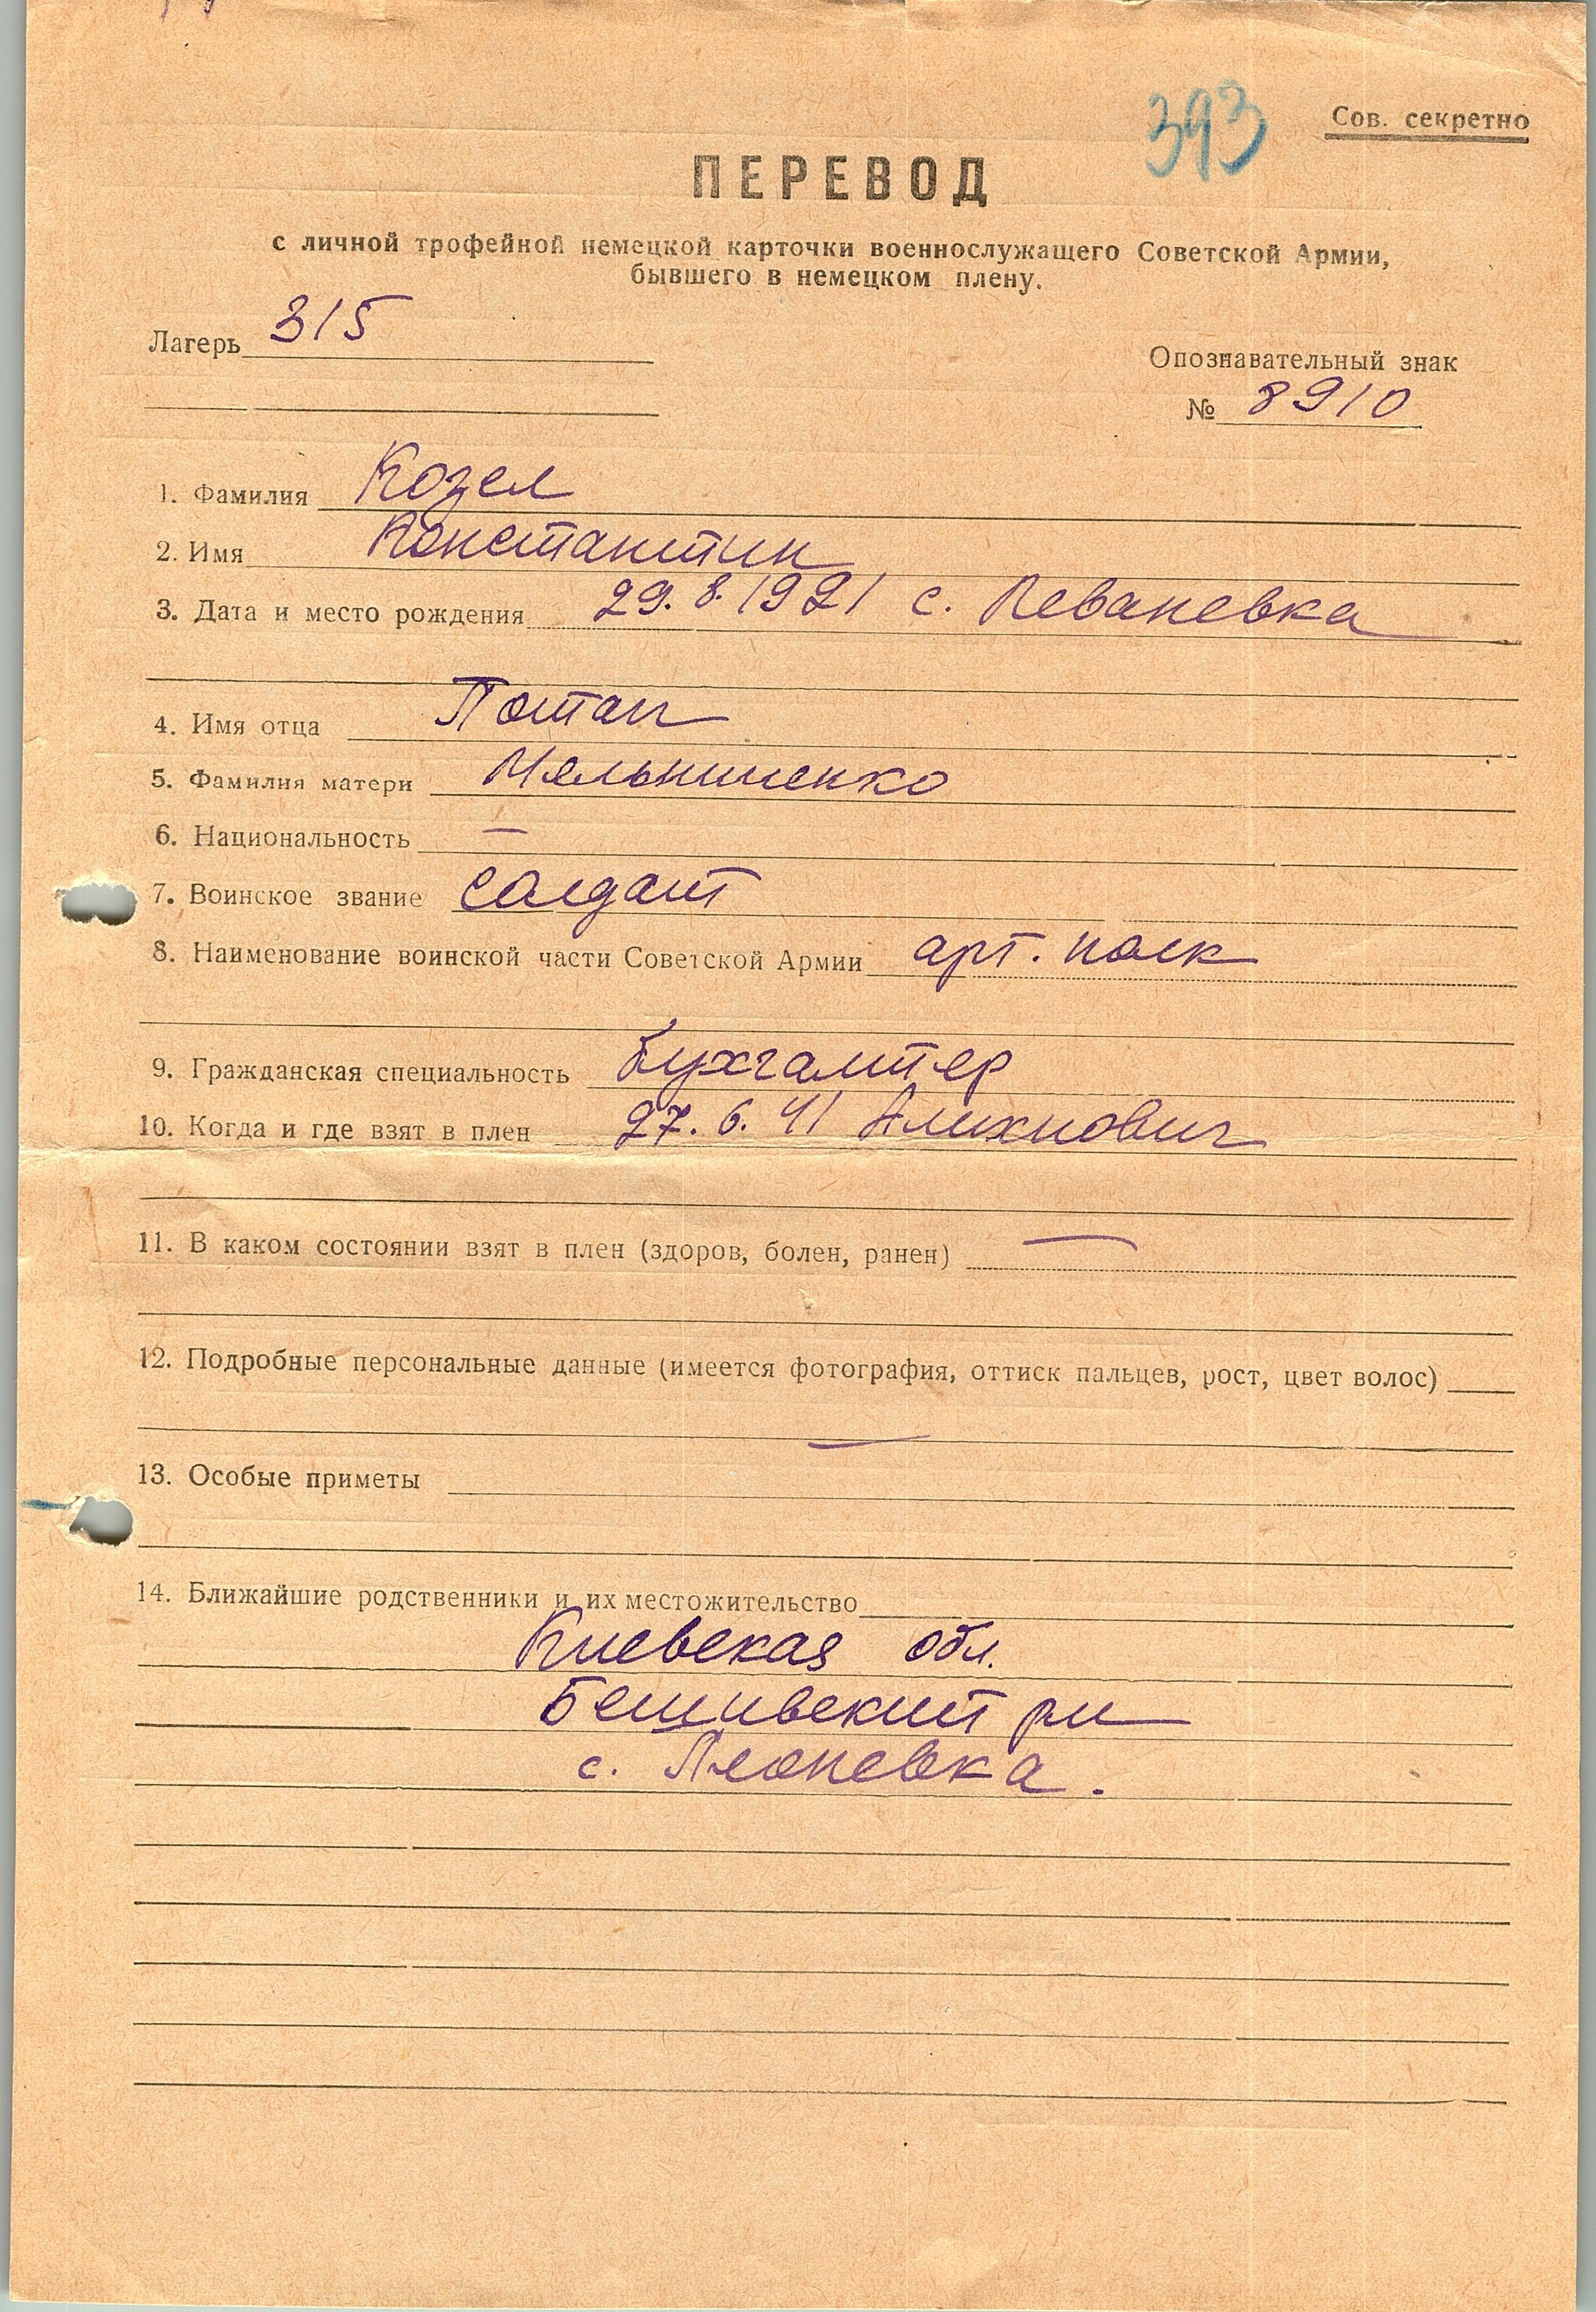 393
Сов. секретно
ПЕРЕВОД
с личной трофейной немецкой карточки военнослужащего Советской Армии,
бывшего в немецком плену.
Лагерь 315
Опознавательный знак
№ 8910
1. Фамилия Козел
2. Имя Константин
3. Дата и место рождения 29.8.1921 с. Леваневка
4. Имя отца Потап
5. Фамилия матери
6. Национальность —
7. Воинское звание солдат
8. Наименование воинской части Советской Армии арт. полк
9. Гражданская специальность Бухгалтер
10. Когда и где взят в плен 27.6.41
11. В каком состоянии взят в плен (здоров, болен, ранен) —
12. Подробные персональные данные (имеется фотография, оттиск пальцев, рост, цвет волос)
—
13. Особые приметы
14. Ближайшие родственники и их местожительство
Киевская обл.
с.